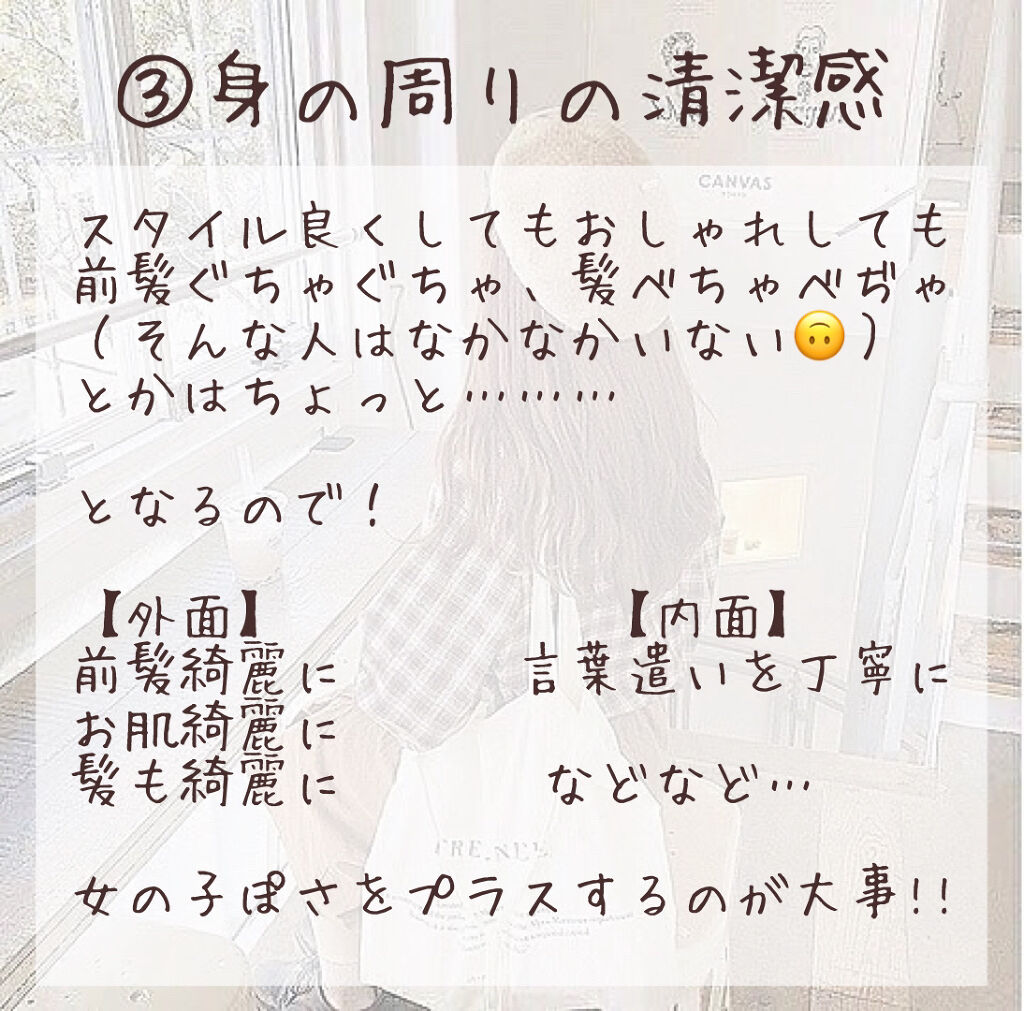 ③身の周りの清潔感
CANVAS
スタイル良くしてもおしゃれしても
前髪ぐちゃぐちゃ、髪べちゃべぢゃ
(そんな人はなかなかいない🙃)
とかはちょっと………
となるので!
【外面】
前髪綺麗に
お肌綺麗に
髪も綺麗に
【内面】
言葉遣いを丁寧に
などなど…
女の子ぽさをプラスするのが大事!!